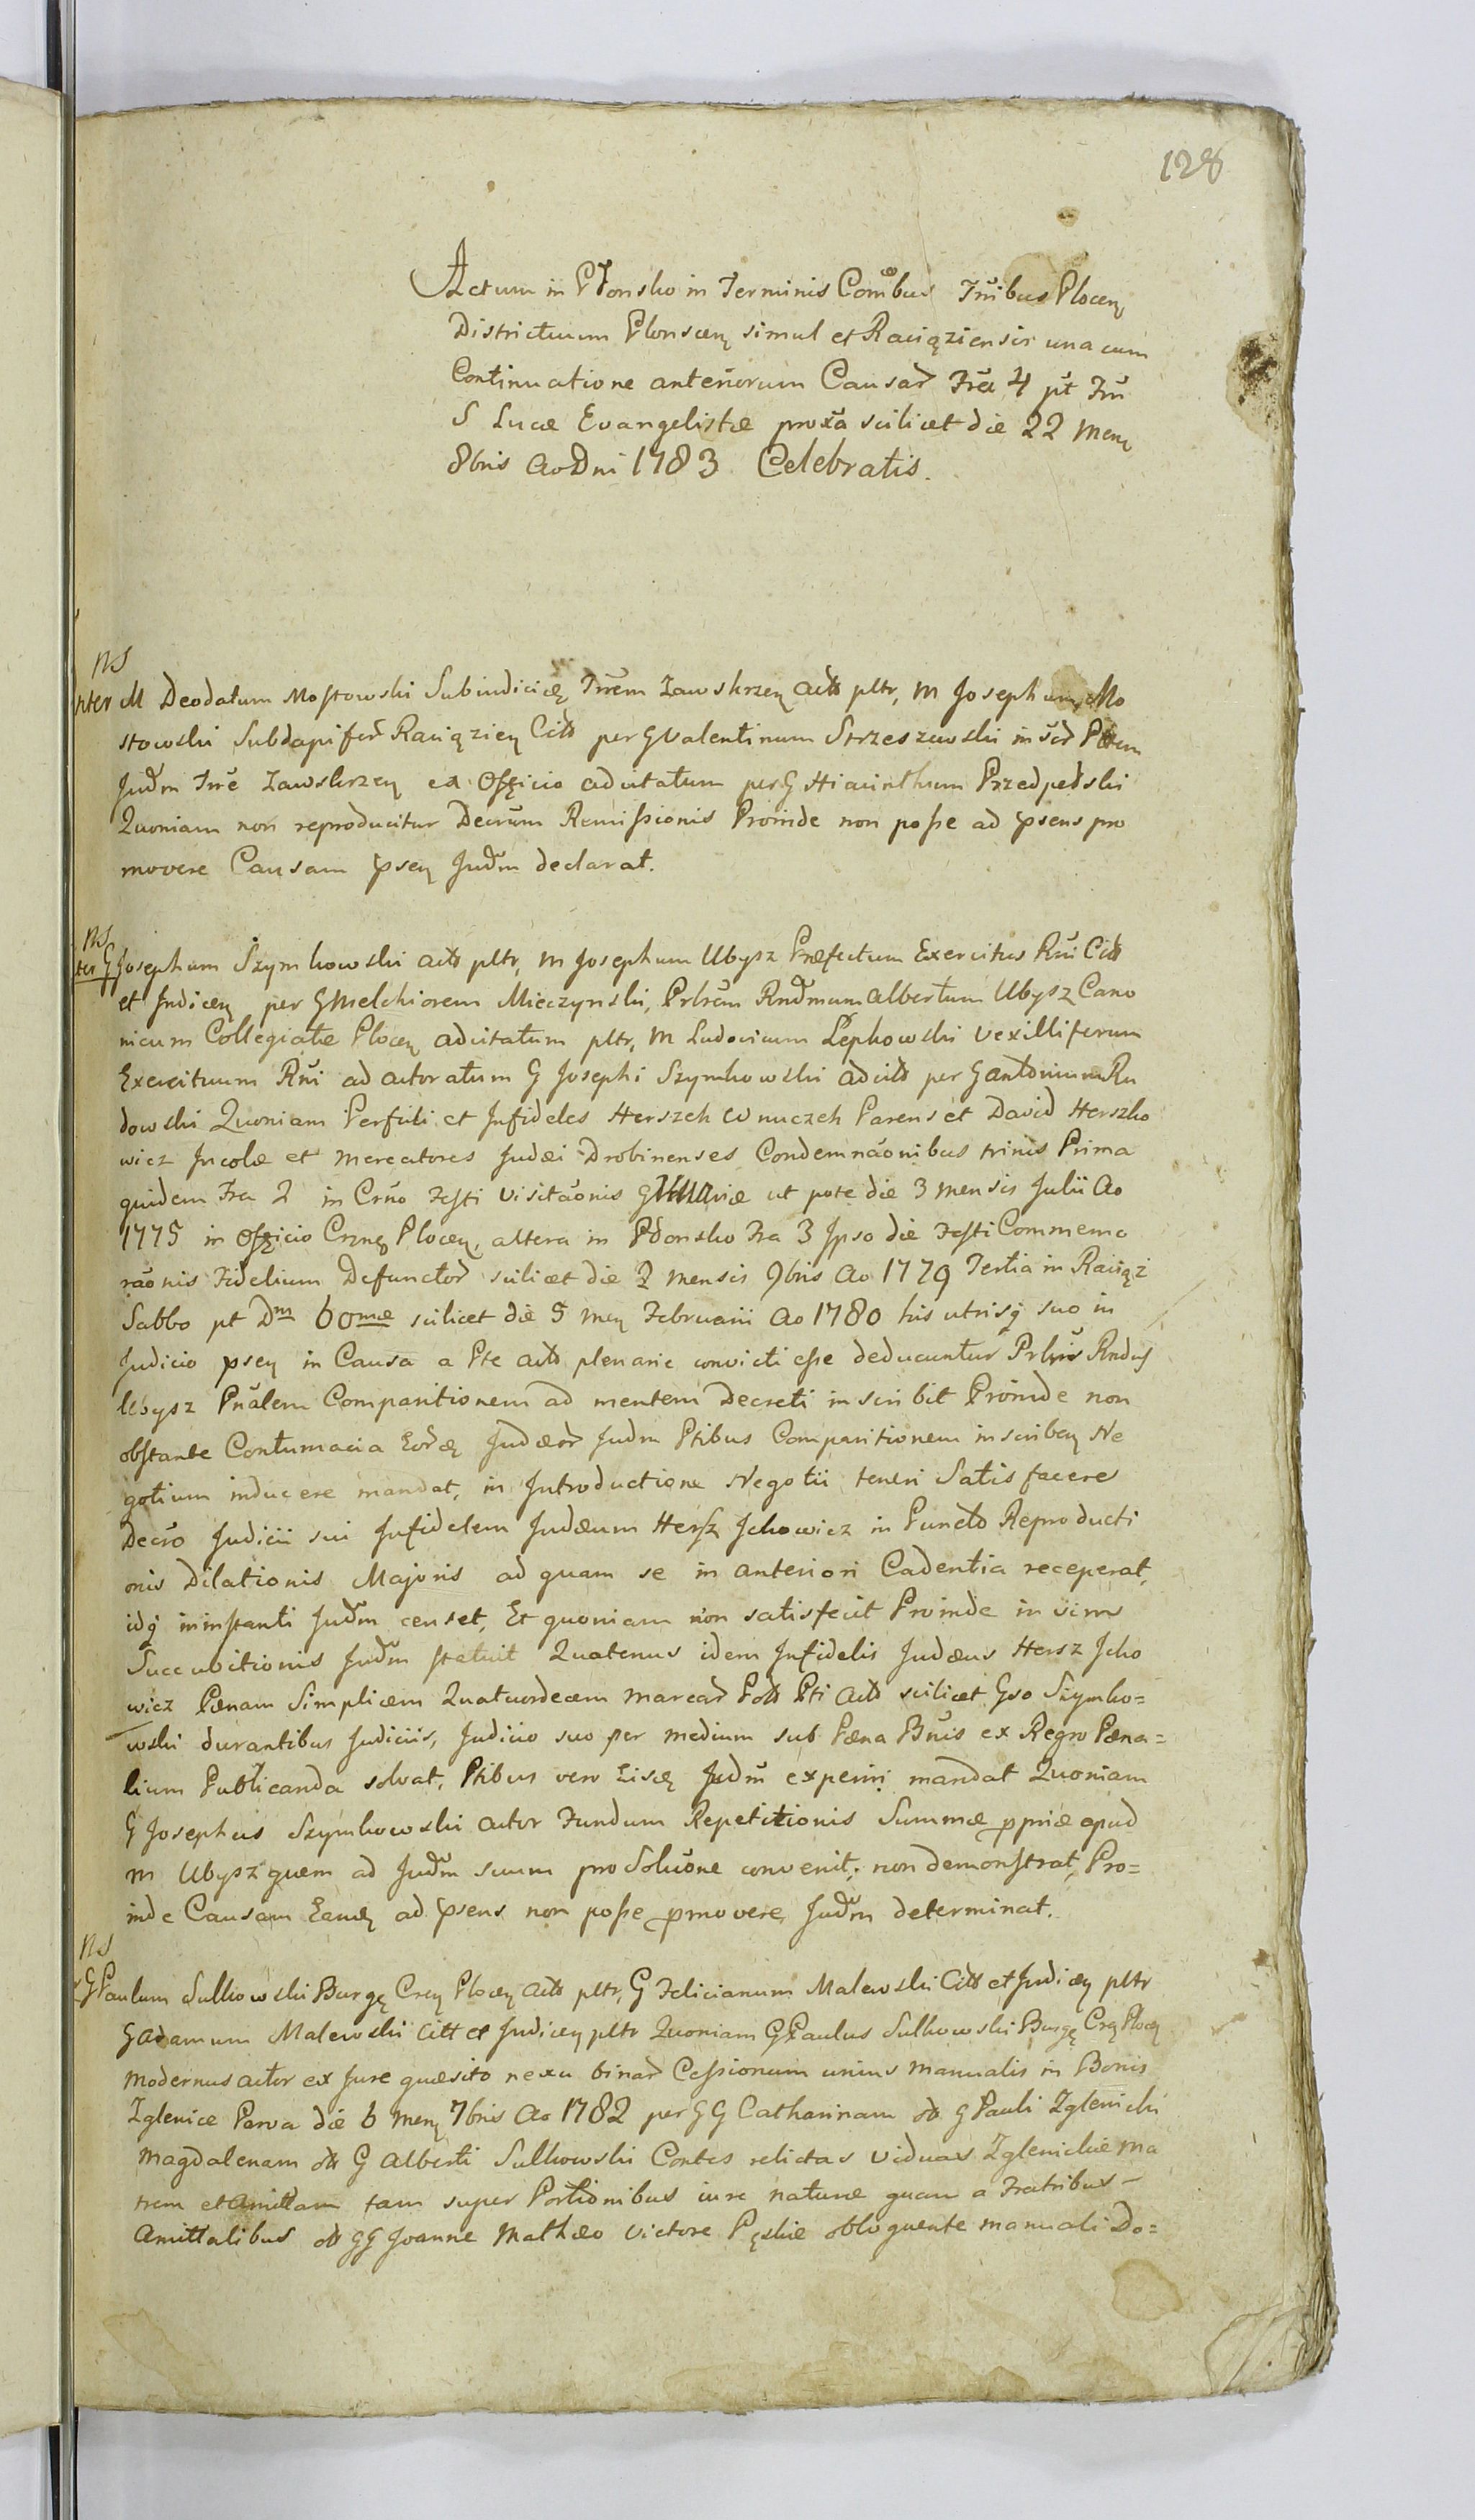 128
Actum in Płonsko in Terminis Combus Trribus Plocen
Districtuum Plonscen simul et Raciąziensis una cum
Continuatione anteriorum Causar Fria 4 pt Fm
S Lucæ Evangelistæ proxa scilicet die 22 Mens
8bris Ao Dni 1783 Celebratis.
NS
nter M Deodatum Mostowski Subiudicem Trrem Zawskrzen Actt pltr, M Josephum Mo
stowski Subdapiferr Raciązien Citt per G Valentinum Strzeszewski in
Judm Trre Zawskrzen ex Officio adcitatum per G Hiacinthum Przedpełski
Quoniam non reproducitur Decrum Remissionis Proinde non posse ad psens pro
movere Causam psen Judm declarat.
NS
ter G Josephum Szymkowski Actt pltr, M Josephum Ubysz Præfectum Exercitus Rni Citt
et Judicen per G Melchiorem Mieczynski, Prlrem Rndmum Albertum Ubysz Cano
nicum Collegiatæ Plocen adcitatum pltr, M Ludovicum Łępkowski Vexilliferum
Exercituum Rni ad actoratum G Josephi Szymkowski adcitt per G Antonium Ru
dowski Quoniam Perfidi et Infideles Herszek Wnuczek Parens et David Herszko
wicz Incolæ et Mercatores Judæi Drobinenses Condemnaonibus trinis Prima
quidem Fria 2 in Crno Festi Visitaonis G Mariæ ut pote die 3 mensis Julii Ao
1775 in Officio Plocen, altera in Płonsko Fra 3 Ipso die Festi Commemo
raonis Fidelium Defunctor scilicet die 2 mensis 9bris Ao 1779 Tertia in Raciąż
Sabbo pt Dm 60mæ scilicet die 5 Men Februarii Ao 1780 his utrisq suo in
Judicio psen in Causa a Pte Actt plenarie convicti esse deducuntur Rndus
Ubysz Pnalem Comparitionem ad mentem Decreti inscribit Proinde non
obstante Contumacia Eord Judæor Judm Ptibus Comparitionem inscriben Ne
gotium inducere mandat, in Introductione Negotii teneri Satisfacere
Decro Judicii sui Infidelem Judæum Hersz Ickowicz in Puncto Reproducti
onis Dilationis Majoris ad quam se in anteriori Cadentia receperat,
idq in instanti Judm censet, Et quoniam non satisfecit Proinde in vim
Succubitionis Judm statuit Quatenus idem Infidelis Judæus Hersz Icko
wicz Pænam Simplicem Quatuordecem Marcar Pott Pti Actt scilicet Gso Szymko=
wski durantibus Judiciis, Judicio suo per medium sub Pæna Bnis ex Regro Pæna=
lium Publicanda solvat, Ptibus vero Eisd Judm experiri mandat Quoniam
G Josephus Szymkowski Actor Fundum Repetitionis Summæ ppriæ apud
M Ubysz quem ad Judm suum pro Soluone convenit, non demonstrat, Pro=
inde Causam Eamd ad psens non posse pmovere Judm determinat.
NS
G Paulum Sulkowski Burg Cren Plocen Actt pltr, G Felicianum Malewski Citt et Judicen pltr
G Adamum Malewski Citt et Judicen pltr Quoniam G Paulus Sulkowski Burg Plocen
Modernus Actor ex Jure quæsito nexu binar Cessionum unius Manualis in Bonis
Zglenice Parva die 6 Men 7bris Ao 1782 per GG Catharinam ott G Pauli Zglenicki
Magdalenam ott G Alberti Sulkowski Contes relictas Viduas Zglenickie Ma
trem et Amittam tam super Portionibus iure naturæ quam a Fratribus
Amittalibus ott GG Joanne Mathæo Victore Pęskie obloquente manuali Do=